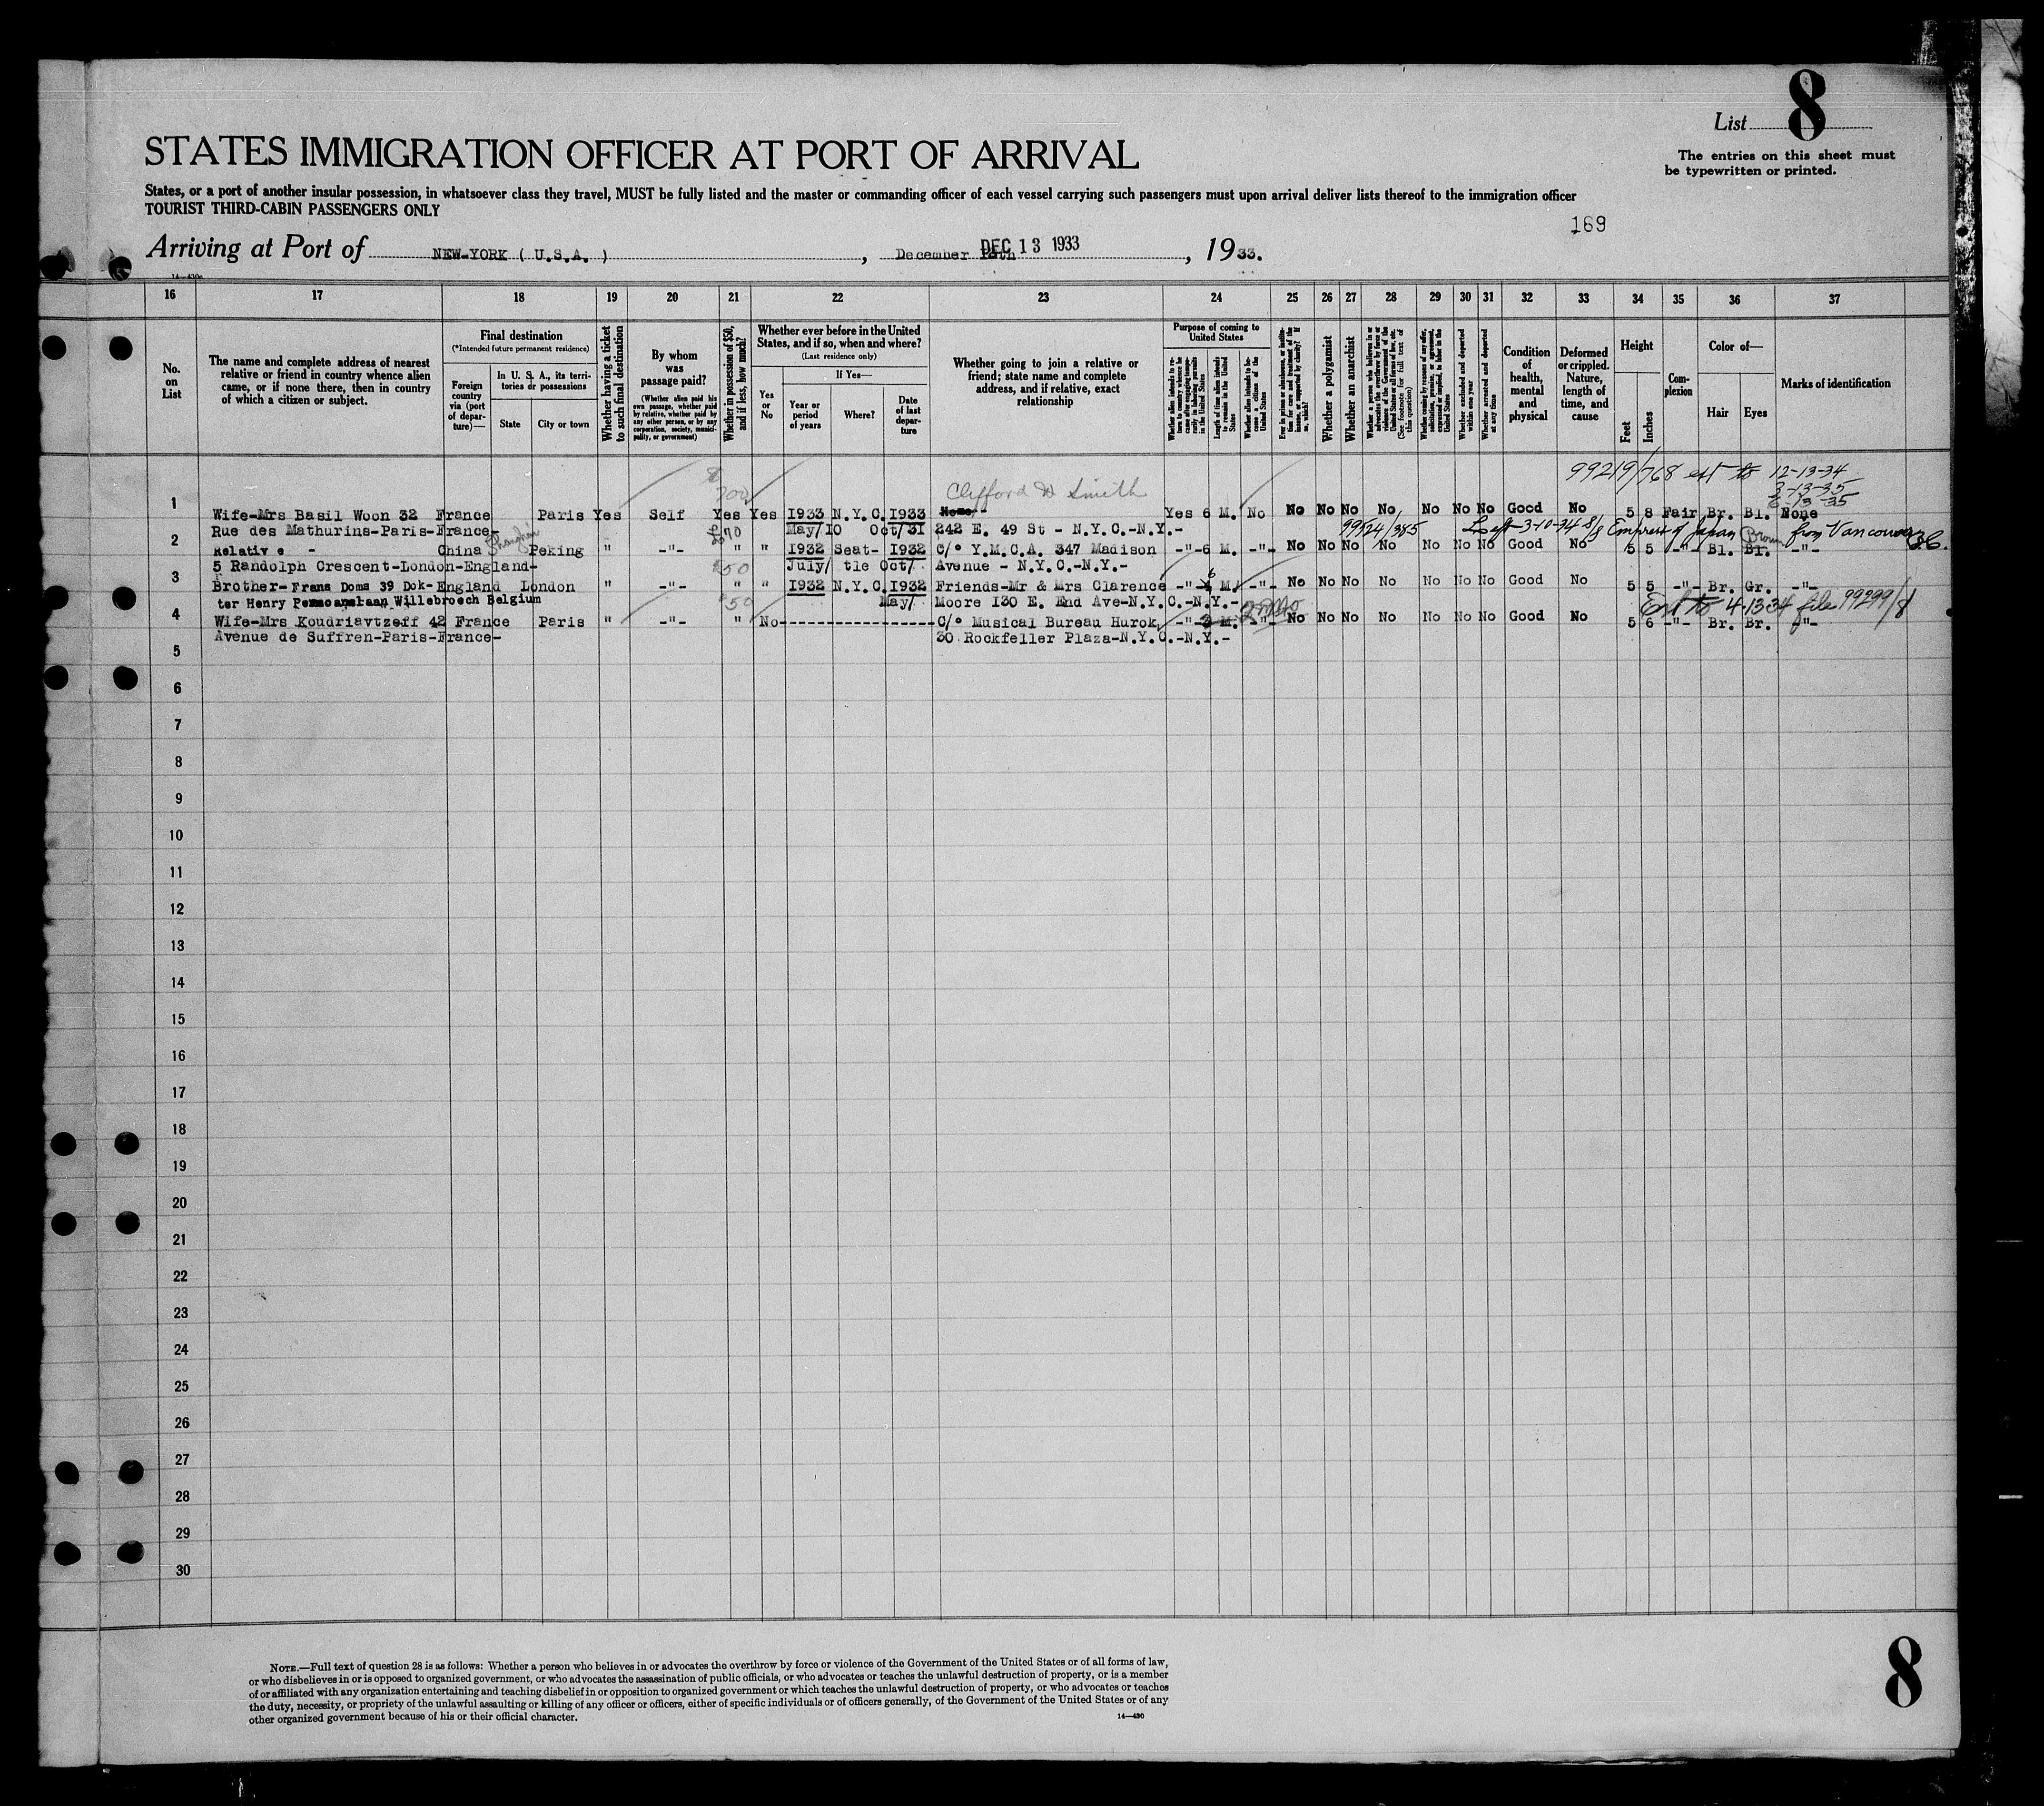 List 8
The entries on this sheet must
be typewritten or printed.
STATES IMMIGRATION OFFICER AT PORT OF ARRIVAL
States, or a port of another insular possession, in whatsoever class they travel, MUST be fully listed and the master or commanding officer of each vessel carrying such passengers must upon arrival deliver lists thereof to the immigration officer
TOURIST THIRD-CABIN PASSENGERS ONLY
169
Arriving at Port of NEW-YORK ( U.S.A. ) , December DEC 13 1933 , 1933.
14—430a
16 17 18 19 20 21 22 23 24 25 26 27 28 29 30 31 32 33 34 35 36 37
No. on List
The name and complete address of nearest relative or friend in country whence alien came, or if none there, then in country of which a citizen or subject.
Final destination
(*Intended future permanent residence)
Foreign country via (port of departure)—
In U. S. A., its territories or possessions
State
City or town
Whether having a ticket to such final destination
By whom was passage paid?
(Whether alien paid his own passage, whether paid by relative, whether paid by any other person, or by any corporation, society, municipality, or government)
Whether in possession of $50, and if less, how much?
Whether ever before in the United States, and if so, when and where?
(Last residence only)
Yes or No
If Yes—
Year or period of years
Where?
Date of last departure
Whether going to join a relative or friend; state name and complete address, and if relative, exact relationship
Purpose of coming to United States
Whether alien intends to return to country whence he came after engaging temporarily in laboring pursuits in the United States
Length of time alien intends to remain in the United States
Whether alien intends to become a citizen of the United States
Ever in prison or almshouse, or institution for care and treatment of the insane, or supported by charity? If so, which?
Whether a polygamist
Whether an anarchist
Whether a person who believes in or advocates the overthrow by force or violence of the Government of the United States or all forms of law, etc. (See footnote for full text of this question)
Whether coming by reasons of any offer, solicitation, promise, or agreement, expressed or implied, to labor in the United States
Whether excluded and deported within one year
Whether arrested and deported at any time
Condition of health, mental and physical
Deformed or crippled. Nature, length of time, and cause
Height
Feet
Inches
Complexion
Color of—
Hair
Eyes
Marks of identification
99219/768 ext to 12-13-34
3-13-35
6-13-35
700
Clifford D Smith
1 Wife-Mrs Basil Woon 32 France Paris Yes Self Yes Yes 1933 N.Y.C. 1933 Home- Yes 6 M. No No No No No No No No Good No 5 8 Fair Br. Bl. None
Rue des Mathurins-Paris-France- £70 May/10 Oct/31 242 E. 49 St - N.Y.C.-N.Y.- 99524/385 Left 3-10-34 S/S Empress of Japan from Vancouver BC.
2 Relative - China Shanghai Peking " -"- " " 1932 Seat- 1932 C/o Y.M.C.A. 347 Madison -"- 6 M. -"- No No No No No No No Good No 5 5 -"- Bl. Br. Brown -"-
5 Randolph Crescent-London-England- $50 July/ tle Oct/ Avenue - N.Y.C.-N.Y.-
3 Brother-Frans Doms 39 Dok- England London " -"- " " 1932 N.Y.C. 1932 Friends-Mr & Mrs Clarence -"- 6 M. -"- No No No No No No No Good No 5 5 -"- Br. Gr. -"-
ter Henry Willebroech Belgium $50 May/ Moore 130 E. End Ave-N.Y.C.-N.Y.- Ext to 4-13-34 file 99299/8
4 Wife-Mrs Koudriavtzeff 42 France Paris " -"- " No C/o Musical Bureau Hurok -"- 3 M. -"- No No No No No No No Good No 5 6 -"- Br. Br. -"-
Avenue de Suffren-Paris-France- 30 Rockfeller Plaza-N.Y.C.-N.Y.-
5
6
7
8
9
10
11
12
13
14
15
16
17
18
19
20
21
22
23
24
25
26
27
28
29
30
NOTE.—Full text of question 28 is as follows: Whether a person who believes in or advocates the overthrow by force or violence of the Government of the United States or of all forms of law,
or who disbelieves in or is opposed to organized government, or who advocates the assassination of public officials, or who advocates or teaches the unlawful destruction of property, or is a member
of or affiliated with any organization entertaining and teaching disbelief in or opposition to organized government or which teaches the unlawful destruction of property, or who advocates or teaches
the duty, necessity, or propriety of the unlawful assaulting or killing of any officer or officers, either of specific individuals or of officers generally, of the Government of the United States or of any
other organized government because of his or their official character.
14—430
8